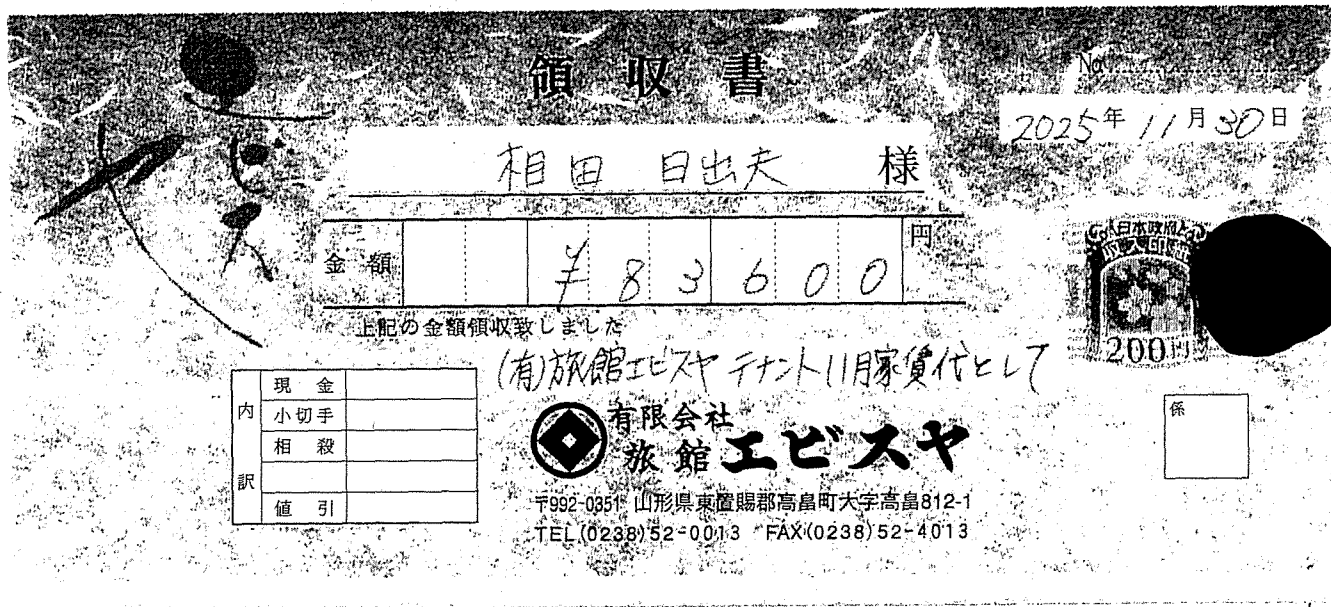 領収書
No
2025年11月30日
相田 日出夫 様
金額 ¥83600円
上記の金額領収致しました
(有)旅館エビスヤ テナント11月家賃代として
日本政府
収入印紙
200円
内訳
現金
小切手
相殺
値引
有限会社
旅館 エビスヤ
〒992-0351 山形県東置賜郡高畠町大字高畠812-1
TEL(0238)52-0013 FAX(0238)52-4013
係